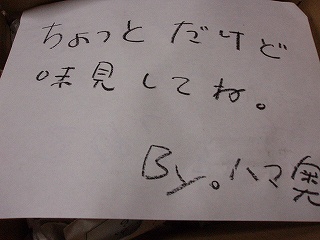 ちょっとだけど
味見してね。
By。ハマ奥